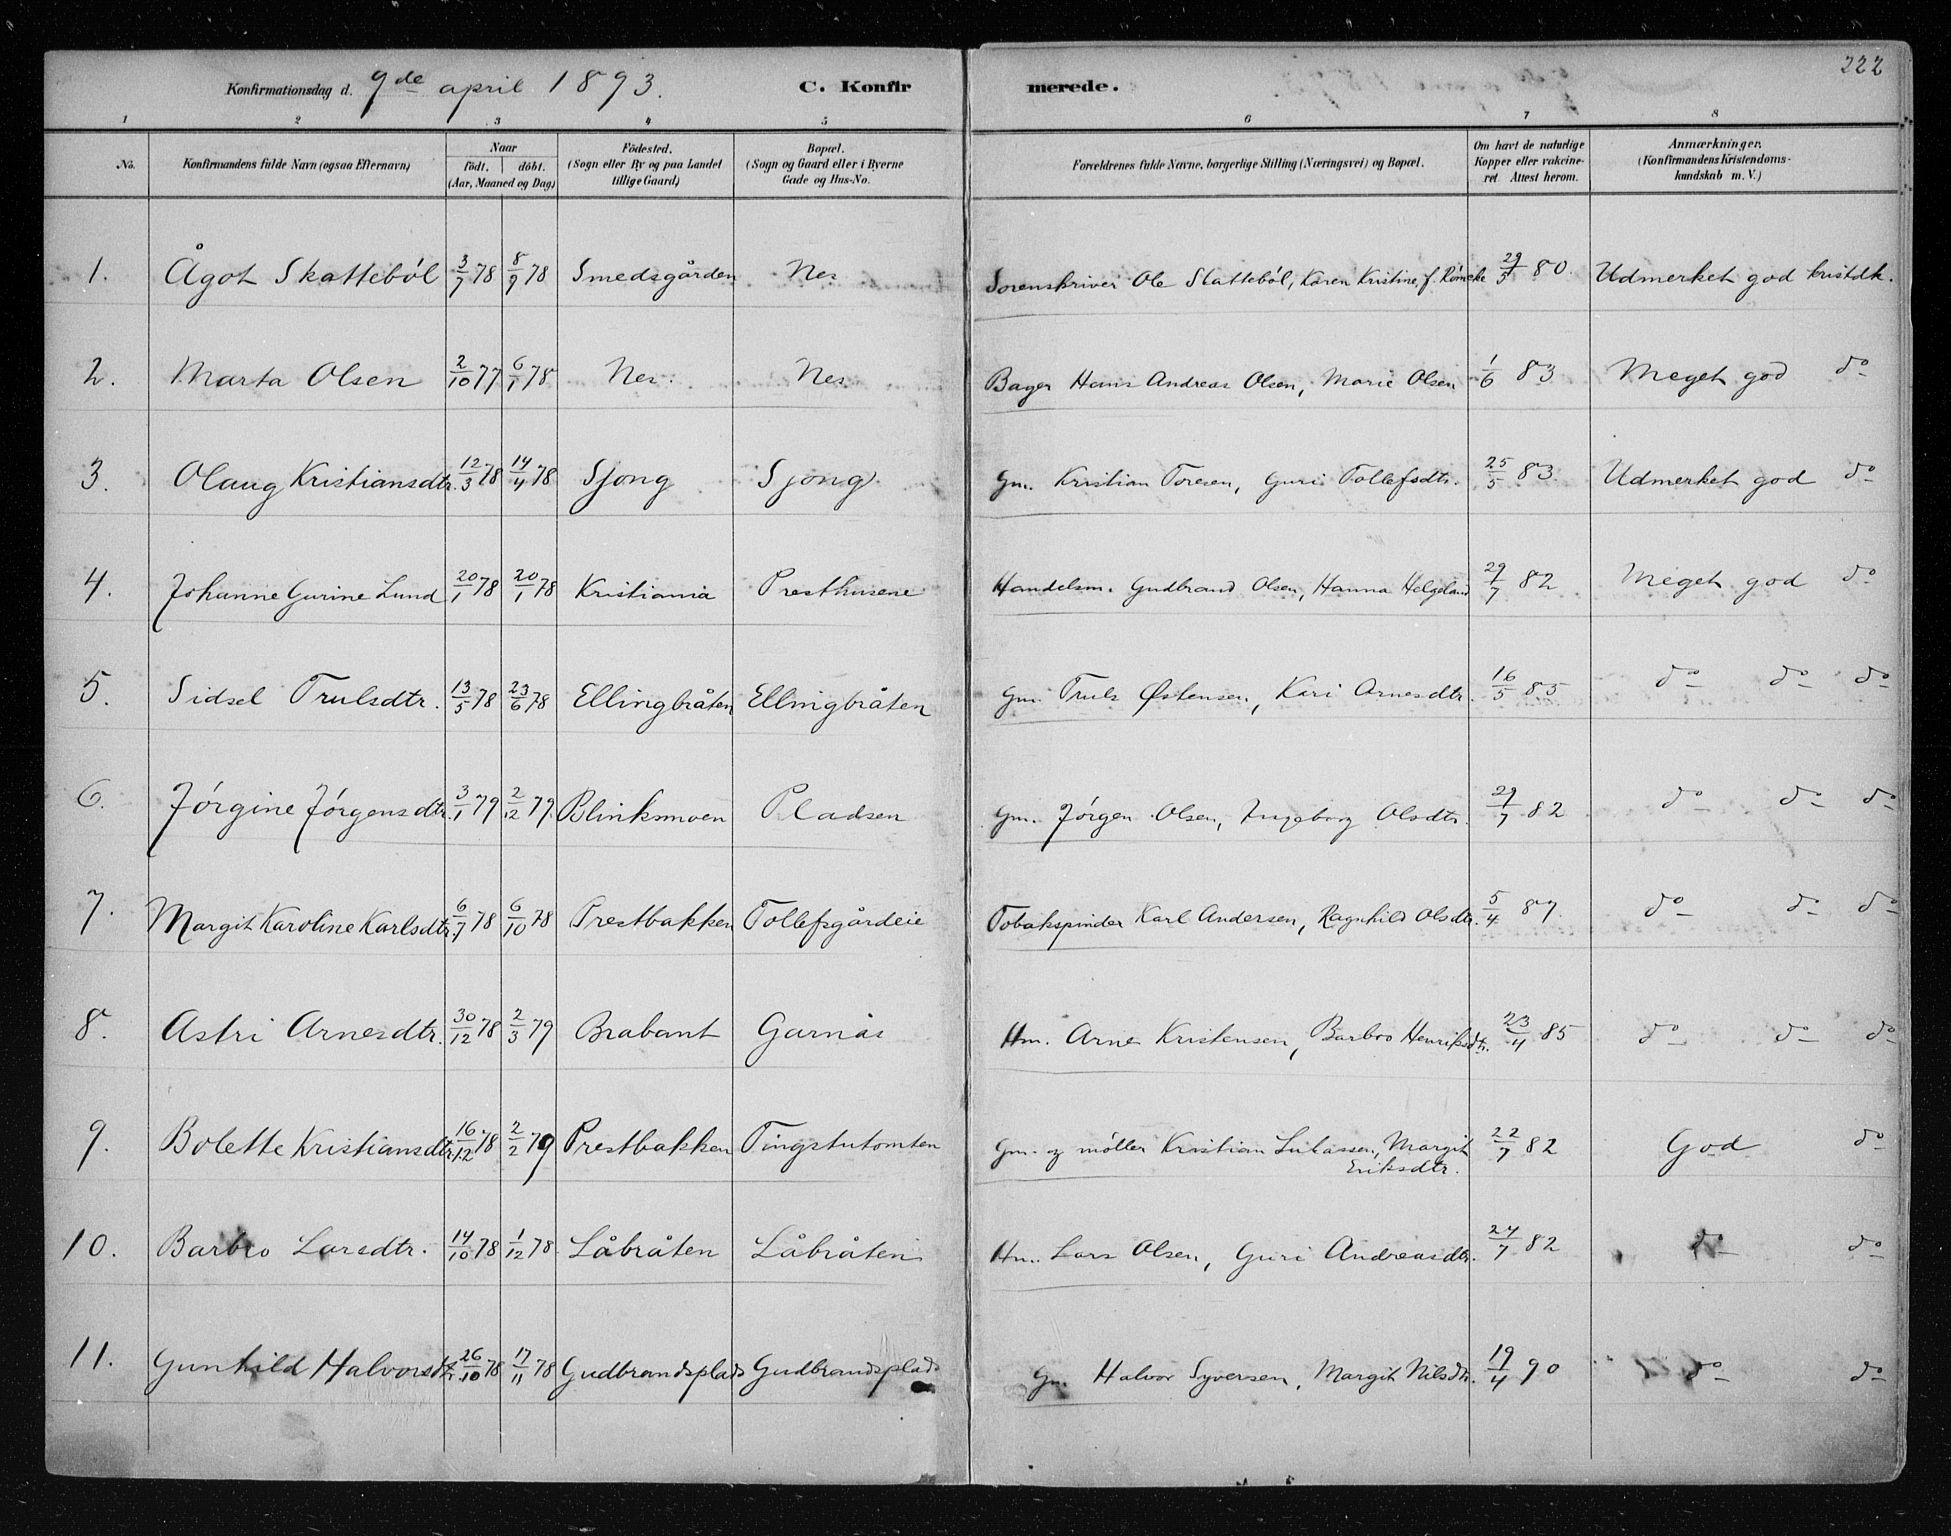 222
Konfirmationsdag d. 9de april 1893. C. Konfirmerede.
1 2 3 4 5 6 7 8
No. Konfirmandens fulde Navn (ogsaa Efternavn) Naar födt. döbt. (Aar, Maaned og Dag) Födested. (Sogn eller By og paa Landet tillige Gaard) Bopæl. (Sogn og Gaard eller i Byerne Gade og Hus-No. Forældrenes fulde Navne, borgerlige Stilling (Næringsvei) og Bopæl. Om havt de naturlige Kopper eller vakcineret Attest herom. Anmærkninger. (Konfirmandens Kristendomskundskab m. V.)
1. Ågot Skatteból 3/7 78 8/9 78 Smedsgården Nes Sorenskriver Ole Skatteból, Karen Kristine, f. Römcke 29/5 80. Udmerket god kristdk.
2. Marta Olsen 2/10 77 6/1 78 Nes. Nes Bager Hans Andreas Olsen, Marie Olsen 1/6 83 Meget god do
3. Olaug Kristiansdtr. 12/3 78 14/4 78 Sjong Sjong Gm. Kristian Toresen, Guri Tollefsdtr. 25/5 83 Udmerket god do
4. Johanne Gurine Lund 20/1 78 20/1 78 Kristiania Presthusene Handelsm. Gudbrand Olsen, Hanna Helgeland 29/7 82 Meget god do
5. Sidsel Trulsdtr. 13/5 78 23/6 78 Ellingbråten Ellingbråten Gm. Truls Østensen, Kari Arnesdtr. 16/5 85 do do do
6. Jórgine Jórgensdtr. 3/1 79 2/12 79. Blinksmoen Pladsen Gm. Jórgen Olsen, Ingeborg Olsdtr. 29/7 82 do do do
7. Margit Karoline Karlsdtr. 6/7 78 6/10 78 Prestbakken Tollefsgårdeie Tobakspinder Karl Andersen, Ragnhild Olsdtr. 5/4 87. do do do
8. Astri Arnesdtr. 30/12 78 2/3 79 Brabant Garnås Hm. Arne Kristensen, Barbro Henriksdtr. 23/4 85 do do do
9. Bolette Kristiansdtr. 16/12 78 2/2 79 Prestbakken Tingstutomten Gm. og møller Kristian Lukassen, Margit
Eriksdtr. 22/7 82 God do
10. Barbro Larsdtr. 14/10 78 1/12 78 Låbråten Låbråten Hm. Lars Olsen, Guri Andreasdtr. 27/7 82 do do
11. Gunhild Halvorsdtr 26/10 78 17/11 78 Gudbrandsplads Gudbrandsplads Gm. Halvor Syversen, Margit Nilsdtr. 19/4 90 do do